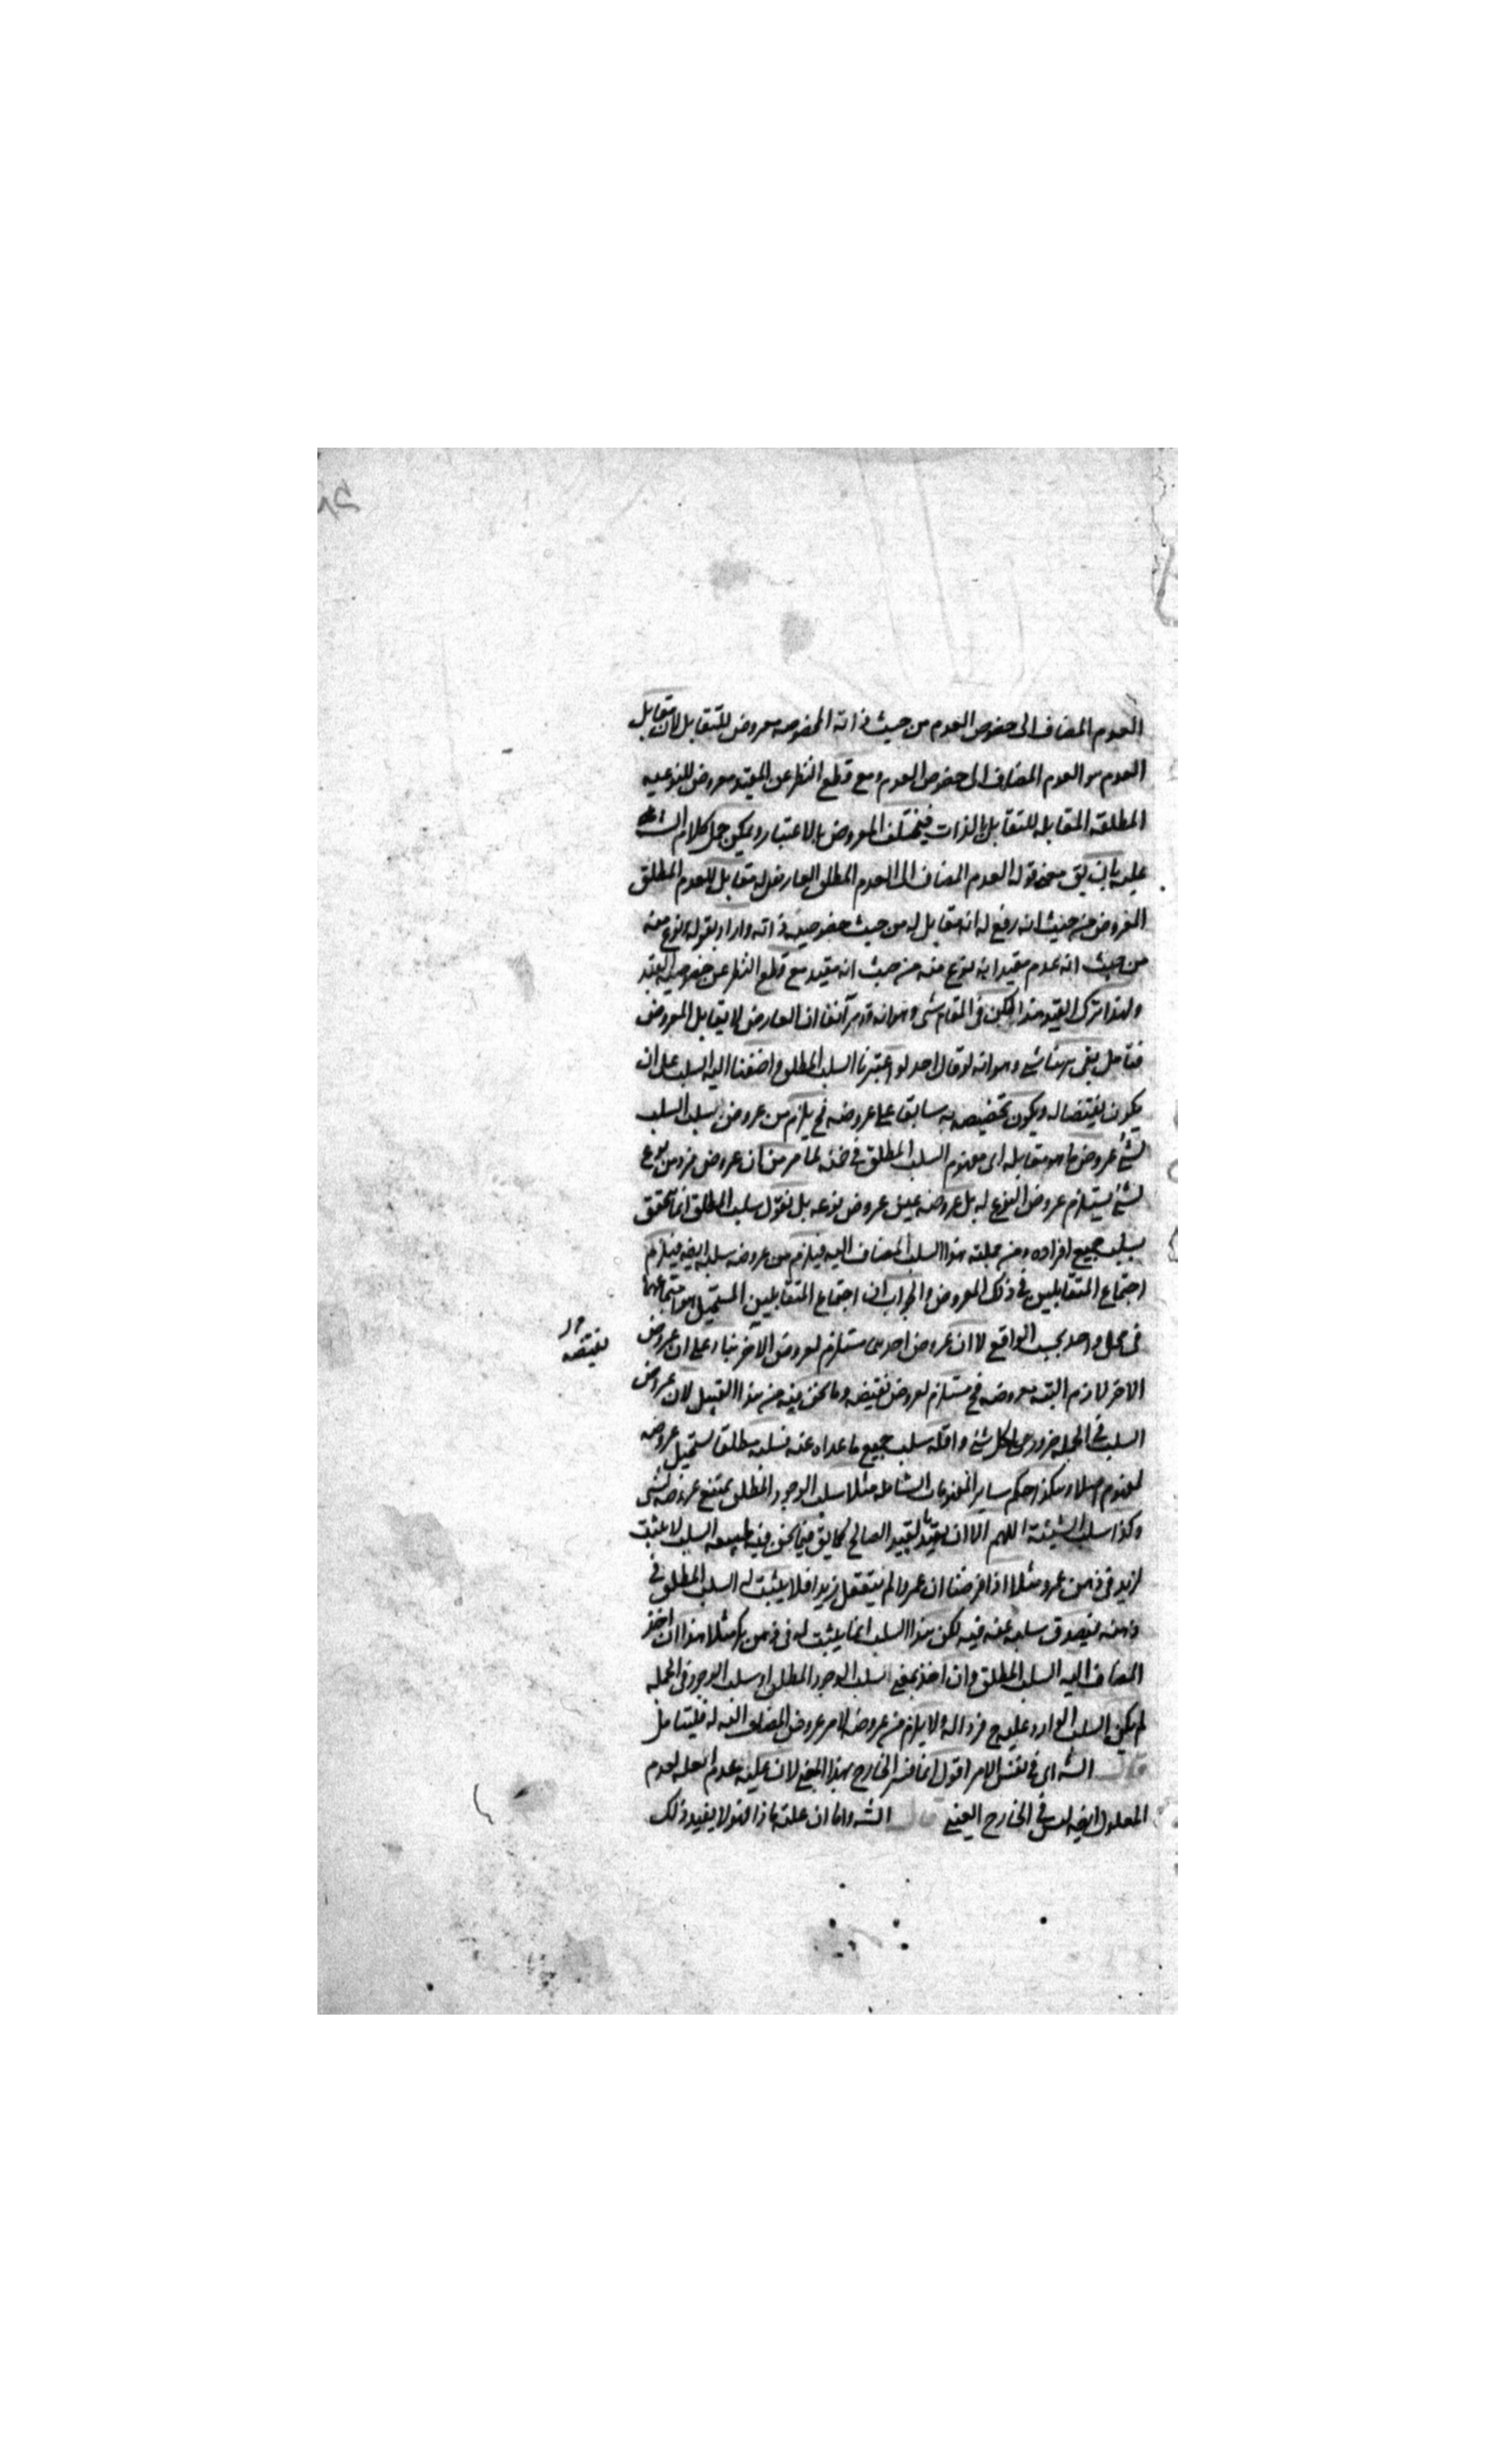 العدم المضاف الى خصوص العدم من حيث ذاته المخصوصه معروض للتقابل لان مقابل
العدم هو العدم المضاف الى خصوص العدم ومع قطع النظر عن المقيد معروض للنوعيه
المطلقه المقابله للتقابل بالذات فيختلف المعروض بالاعتبار ويمكن حمل كلام الش
عليه بان يق معنى قوله العدم المضاف الى العدم المطلق العارض له مقابل للعدم المطلق
المعروض من حيث انه رفع له انه مقابل له من حيث خصوصيه ذاته واراد بقوله نوع منه
من حيث انه عدم مقيد انه نوع منه من حيث انه مقيد مع قطع النظر عن خصوصيه القيد
ولهذا ترك القيد هذا لكن فى المقام شى وهو انه قد مر آنفا ان العارض لا يقابل المعروض
فتامل بقى هنا شئ وهو انه لو قال احد لو اعتبرنا السلب المطلق واضفنا اليه السلب على ان
يكون نقيضا له ويكون تخصيصه به سابقا على عروضه فح يلزم من عروض سلب السلب
لشئ عروض ما هو مقابله اى مفهوم السلب المطلق فى ضمنه لما مر من ان عروض فرد من نوع
لشئ يستلزم عروض النوع له بل عروضه عين عروض نوعه بل نقول سلب المطلق انما يتحقق
بسلب جميع افراده ومن جملته هذا السلب المضاف اليه فيلزم من عروضه سلبه ايضه فيلزم
اجتماع المتقابلين فى ذلك المعروض والجواب ان اجتماع المتقابلين المستحيل هو اجتماعهما
فى محل واحد بحسب الواقع لا ان عروض احدهما مستلزم لعروض الآخر بناء على ان عروض
نقيضه
الاخر لازم البته بعروضه فح مستلزم لعروض نقيضه وما نحن فيه من هذا القبيل لان عروض
السلب فى الجمله ضرورى لكل شئ واقله سلب جميع ما عداه عنه فسلبه مطلقا يستحيل عروضه
لمفهوم اصلا وهكذا حكم ساير المفهومات الشامله مثلا سلب الوجود المطلق يمتنع عروضه لشى
وكذا سلب الشيئة اللهم الا ان يقيد بالقيد الصالح كما يق فيما نحن فيه طبيعه السلب لا يثبت
لزيد فى ذهن عمرو مثلا اذا فرضنا ان عمروا لم يتعقل زيدا فلا يثبت له السلب المطلق فى
ذهنه فيصدق سلبه عنه فيه لكن هذا السلب انما يثبت له فى ذهن بكر مثلا هذا ان اخذ
المضاف اليه السلب المطلق وان اخذ بمعنى سلب الوجود المطلق او سلب الوجود فى الجمله
لم يكن السلب الوارد عليه ح فردا له ولا يلزم من عروض الامر عروض المضاف اليه له فليتامل
قال الشه اى فى نفس الامر اقول انما فسر الخارج بهذا المعنى لان عليه عدم العله لعدم
المعلول ايضه ليس فى الخارج العينى قال الشه واما ان علته ماذا فهو لا يفيد ذلك